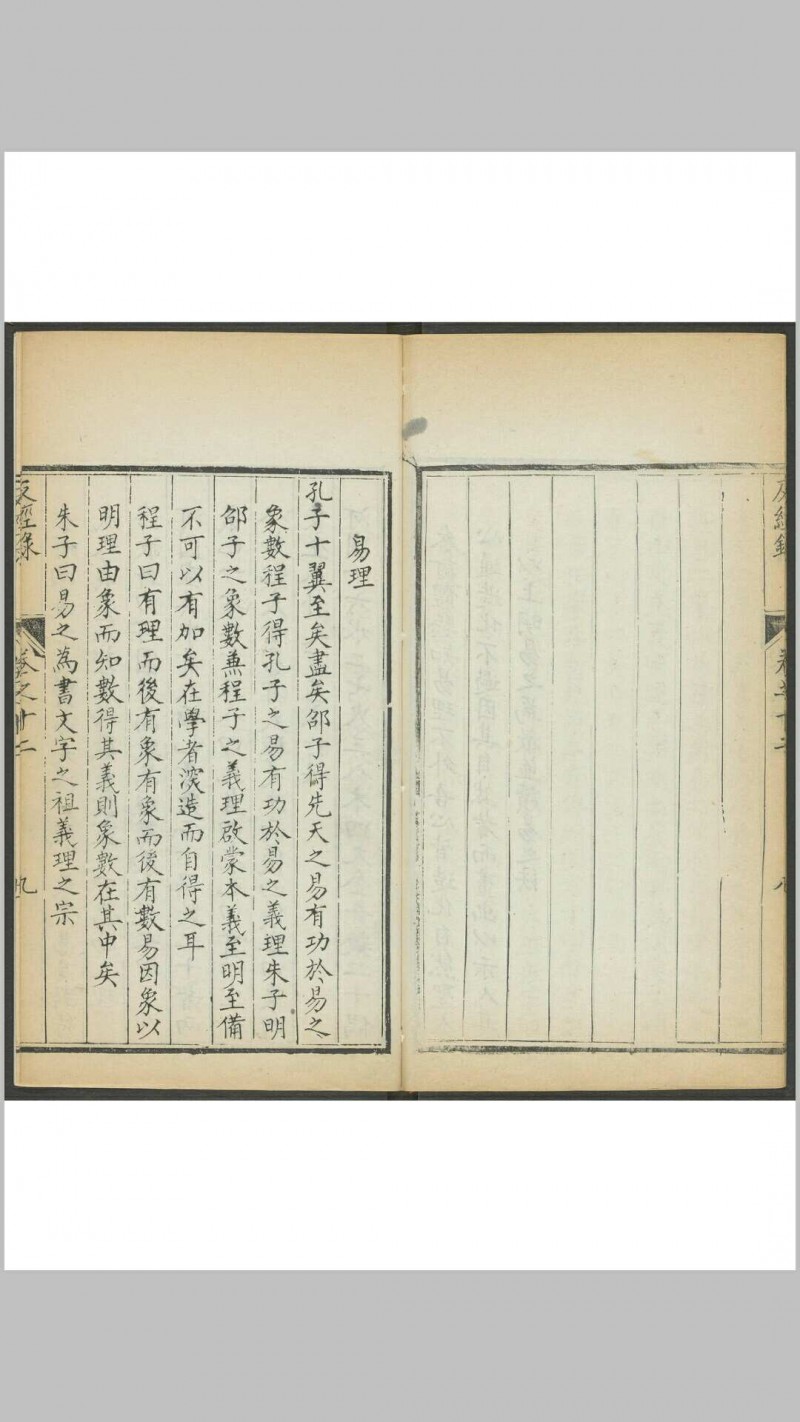 易理
孔子十翼至矣盡矣邵子得先天之易有功於易之
象數程子得孔子之易有功於易之義理朱子明
邵子之象數兼程子之義理啟蒙本義至明至備
不可以有加矣在學者深造而自得之耳
程子曰有理而後有象有象而後有數易因象以
明理由象而知數得其義則象數在其中矣
朱子曰易之為書文字之祖義理之宗
反經錄
卷之十二
九